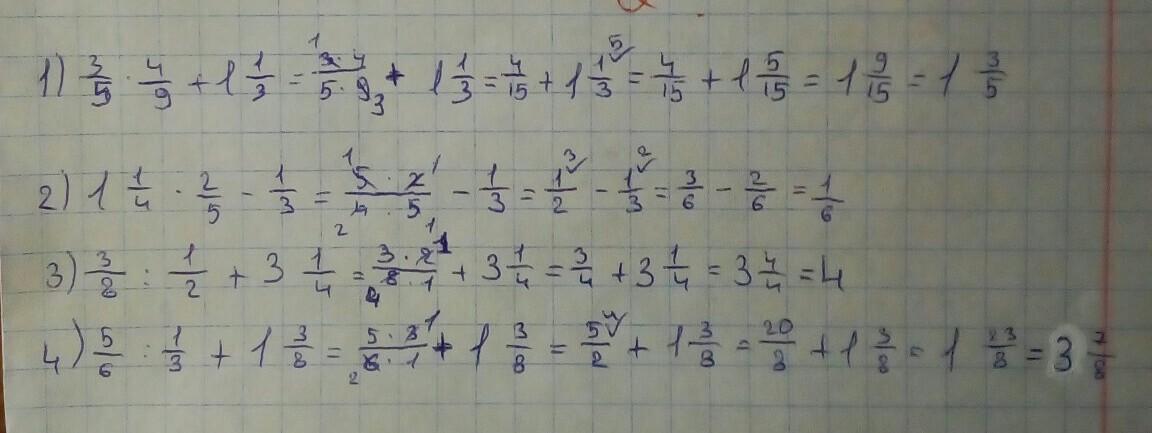 1) 3/5 · 4/9 + 1 1/3 = 3·4/5·9 + 1 1/3 = 4/15 + 1 1/3 = 4/15 + 1 5/15 = 1 9/15 = 1 3/5
2) 1 1/4 · 2/5 - 1/3 = 5·2/4·5 - 1/3 = 1/2 - 1/3 = 3/6 - 2/6 = 1/6
3) 3/8 : 1/2 + 3 1/4 = 3·2/8·1 + 3 1/4 = 3/4 + 3 1/4 = 3 4/4 = 4
4) 5/6 : 1/3 + 1 3/8 = 5·3/6·1 + 1 3/8 = 5/2 + 1 3/8 = 20/8 + 1 3/8 = 1 23/8 = 3 7/8